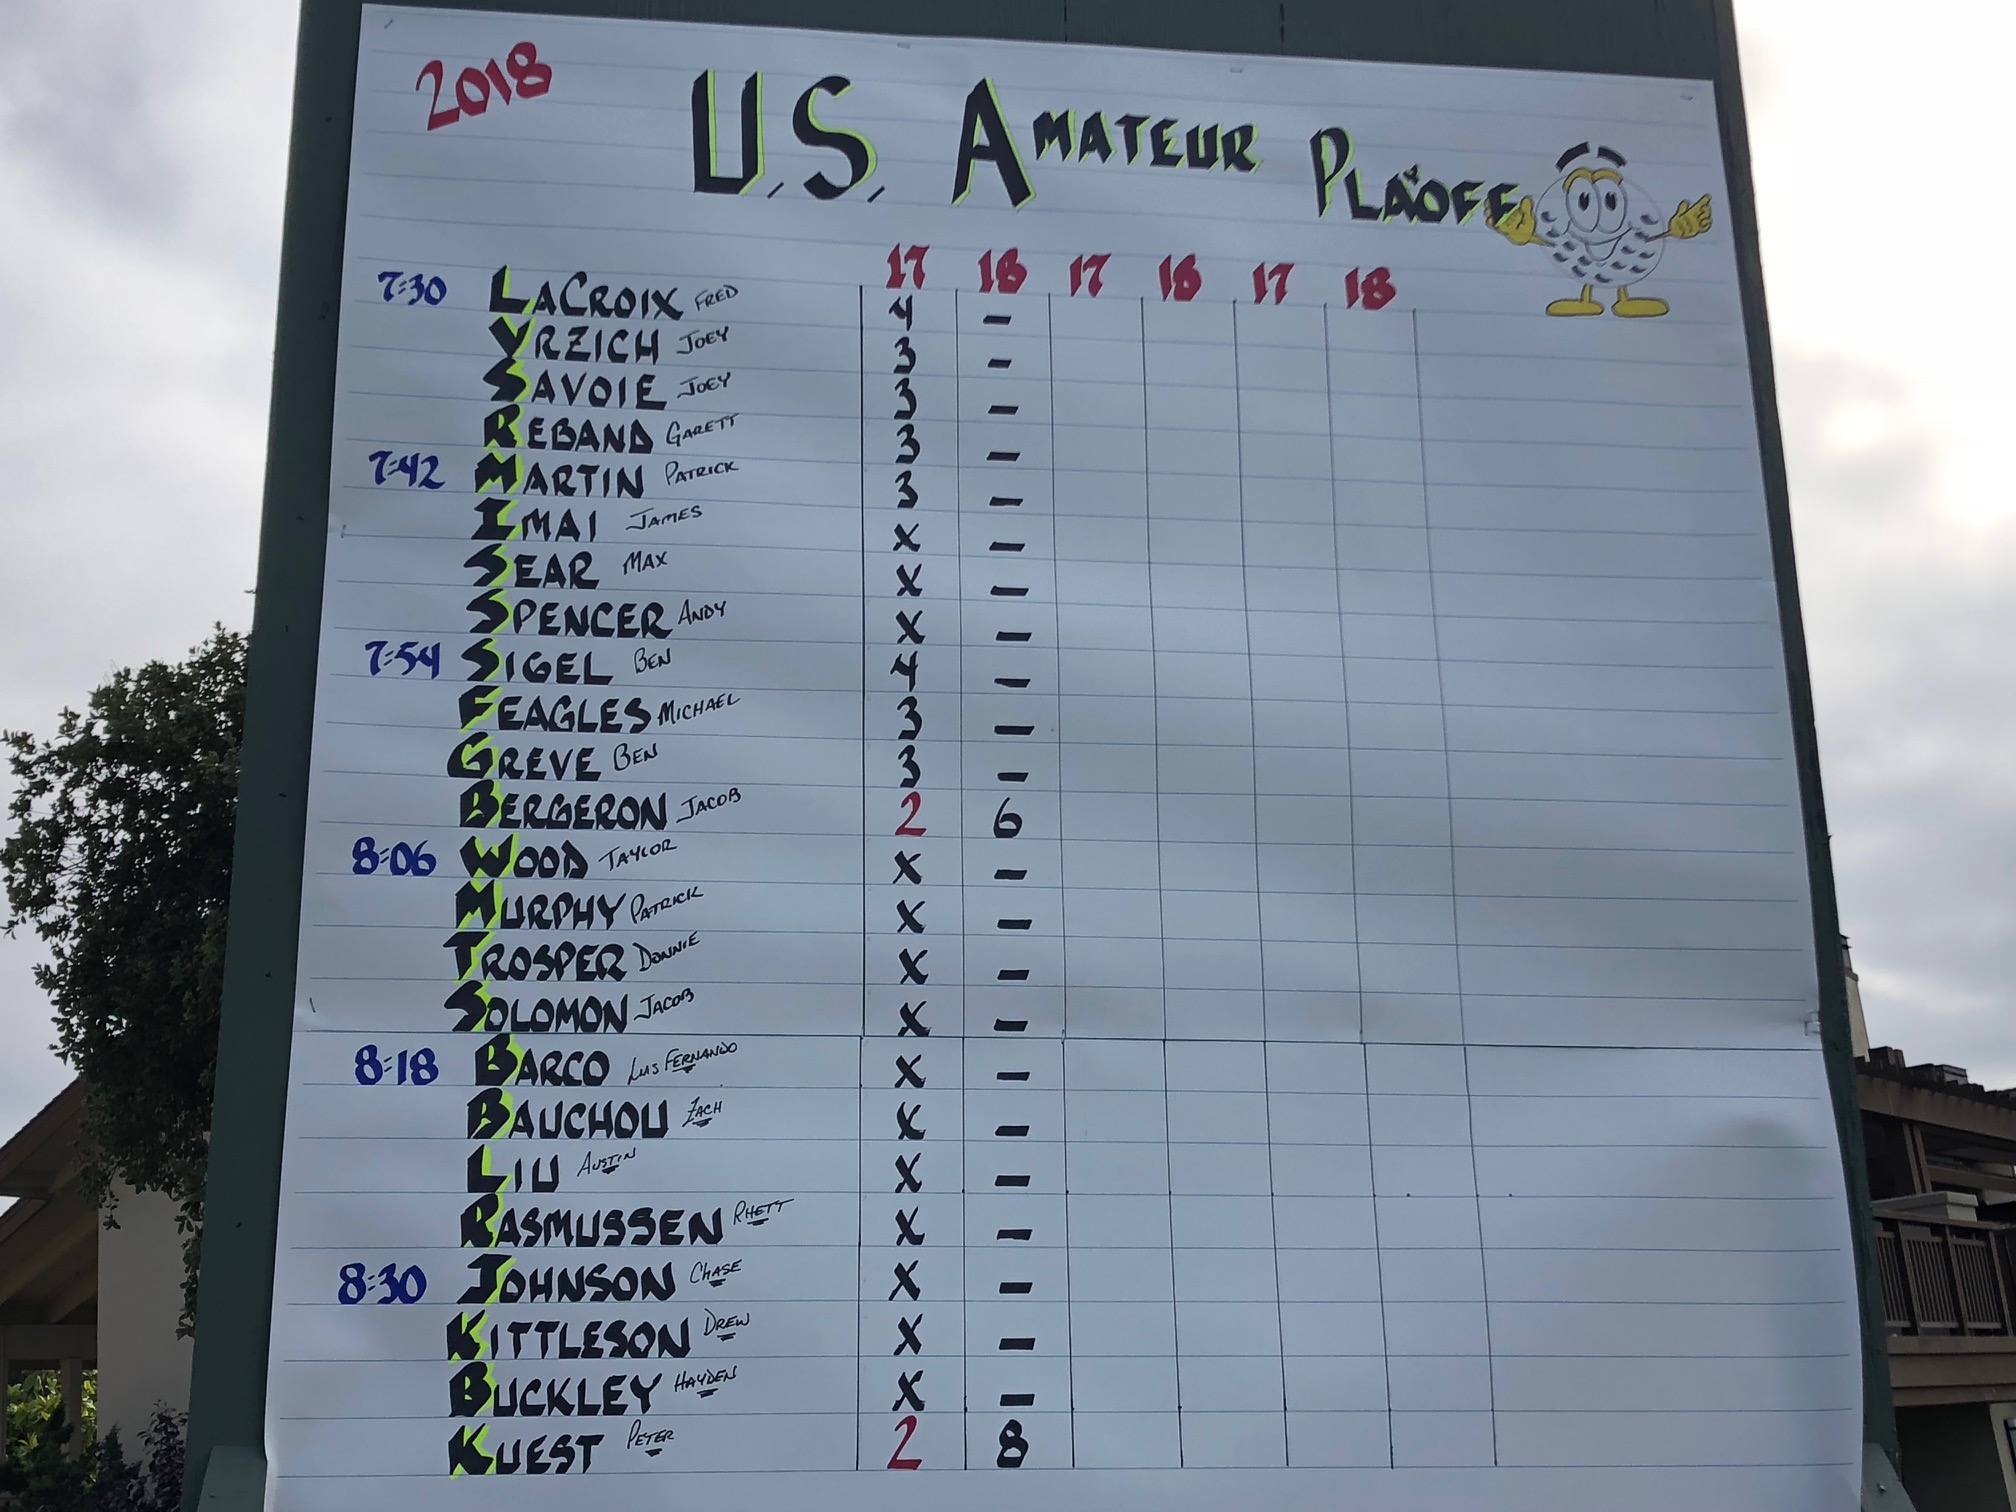 2018
U.S. AMATEUR PLAYOFF
17 18 17 18 17 18
7:30 LACROIX FRED 4 –
VRZICH JOEY 3 –
SAVOIE JOEY 3 –
REBAND GARETT 3 –
7:42 MARTIN PATRICK 3 –
IMAI JAMES X –
SEAR MAX X –
SPENCER ANDY X –
7:54 SIGEL BEN 4 –
FEAGLES MICHAEL 3 –
GREVE BEN 3 –
BERGERON JACOB 2 6
8:06 WOOD TAYLOR X –
MURPHY PATRICK X –
TROSPER DONNIE X –
SOLOMON JACOB X –
8:18 BARCO LUIS FERNANDO X –
BAUCHOU ZACH X –
LIU AUSTIN X –
RASMUSSEN RHETT X –
8:30 JOHNSON CHASE X –
KITTLESON DREW X –
BUCKLEY HAYDEN X –
KUEST PETER 2 8